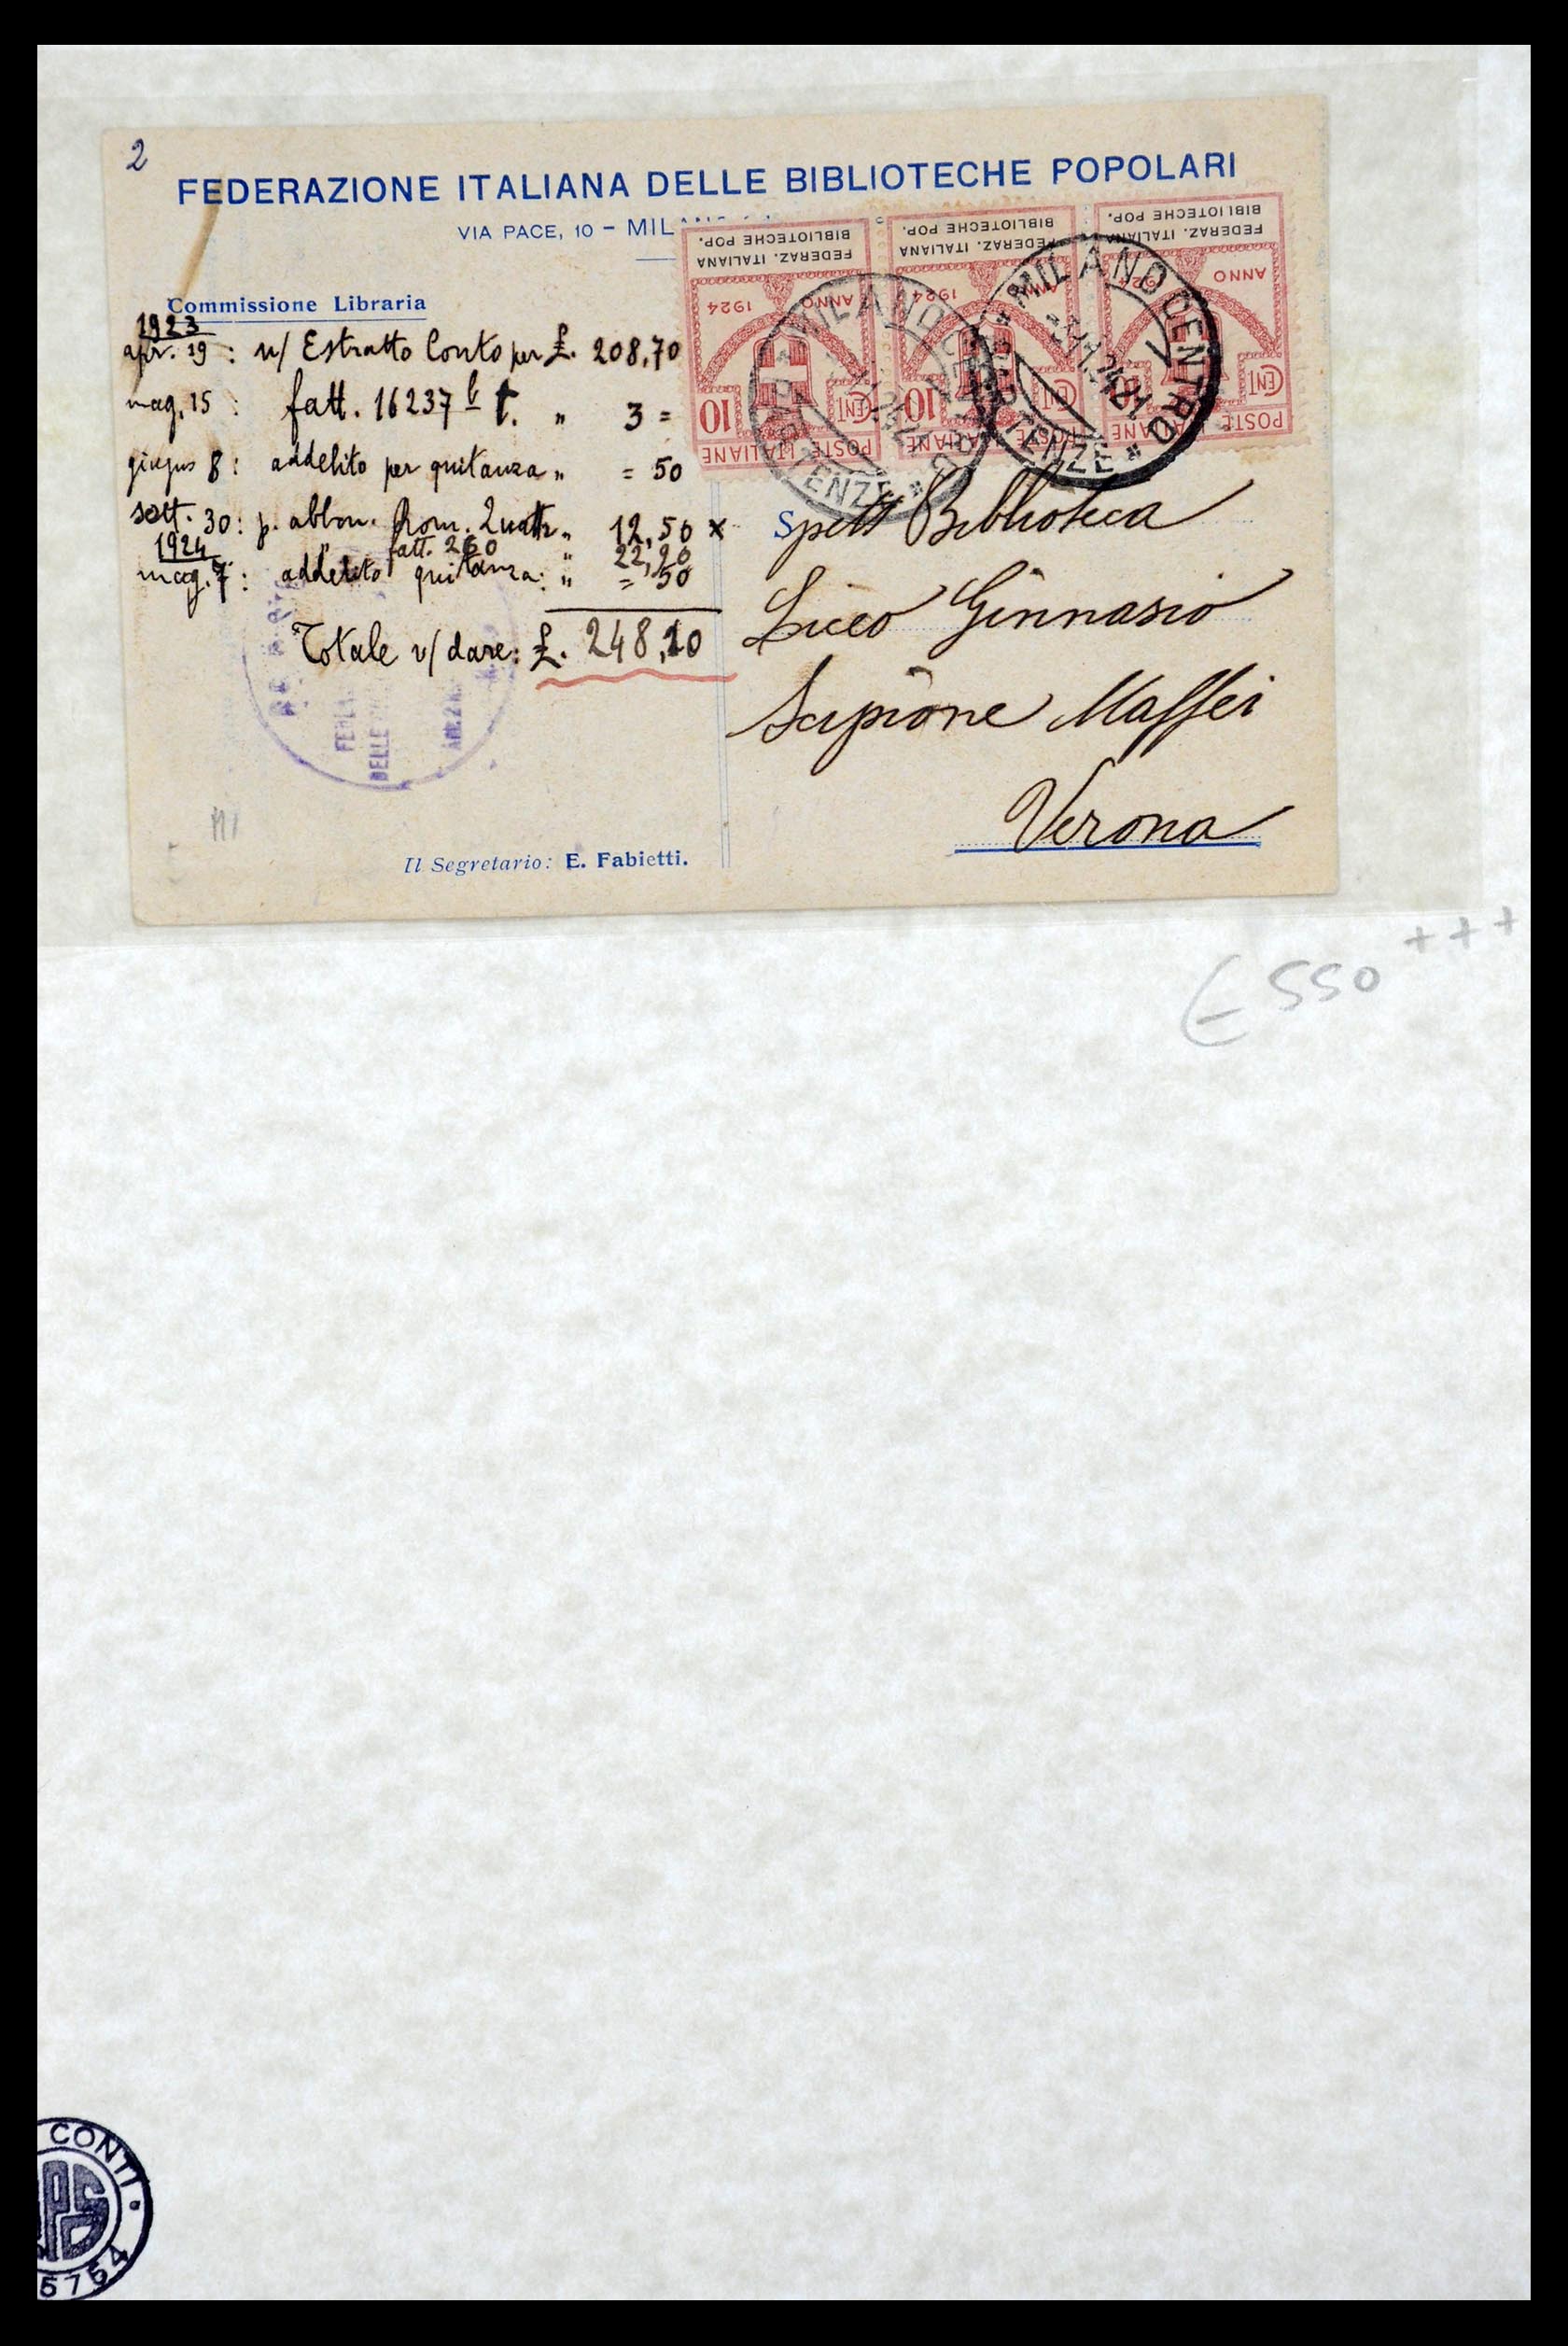 2
FEDERAZIONE ITALIANA DELLE BIBLIOTECHE POPOLARI
VIA PACE, 10 - MIL
Commissione Libraria
1923
apr. 19 : n/ Estratto Conto per £. 208,70
mag. 15 : fatt. 16237 " 3 =
giugno 8 : addebito per quitanza " = 50
sett. 30 : p. abbon. " 12,50 x
1924 fatt. 260 " 22,20
mag. 7 : addebito quitanza : " = 50
Totale v/ dare : £. 248,10
FEDERAZ. ITALIANA
BIBLIOTECHE POP.
ANNO 1924
CENT 10
POSTE ITALIANE
FEDERAZ. ITALIANA
BIBLIOTECHE POP.
ANNO 1924
CENT 10
POSTE ITALIANE
FEDERAZ. ITALIANA
BIBLIOTECHE POP.
ANNO
CENT
POSTE ITALIANE
MILANO CENTRO
PARTENZE
MILANO CENTRO
PARTENZE
Spett Biblioteca
Liceo Ginnasio
Scipione Maffei
Verona
DELLE
Il Segretario: E. Fabietti.
€ 550 +++
CONTI
5754